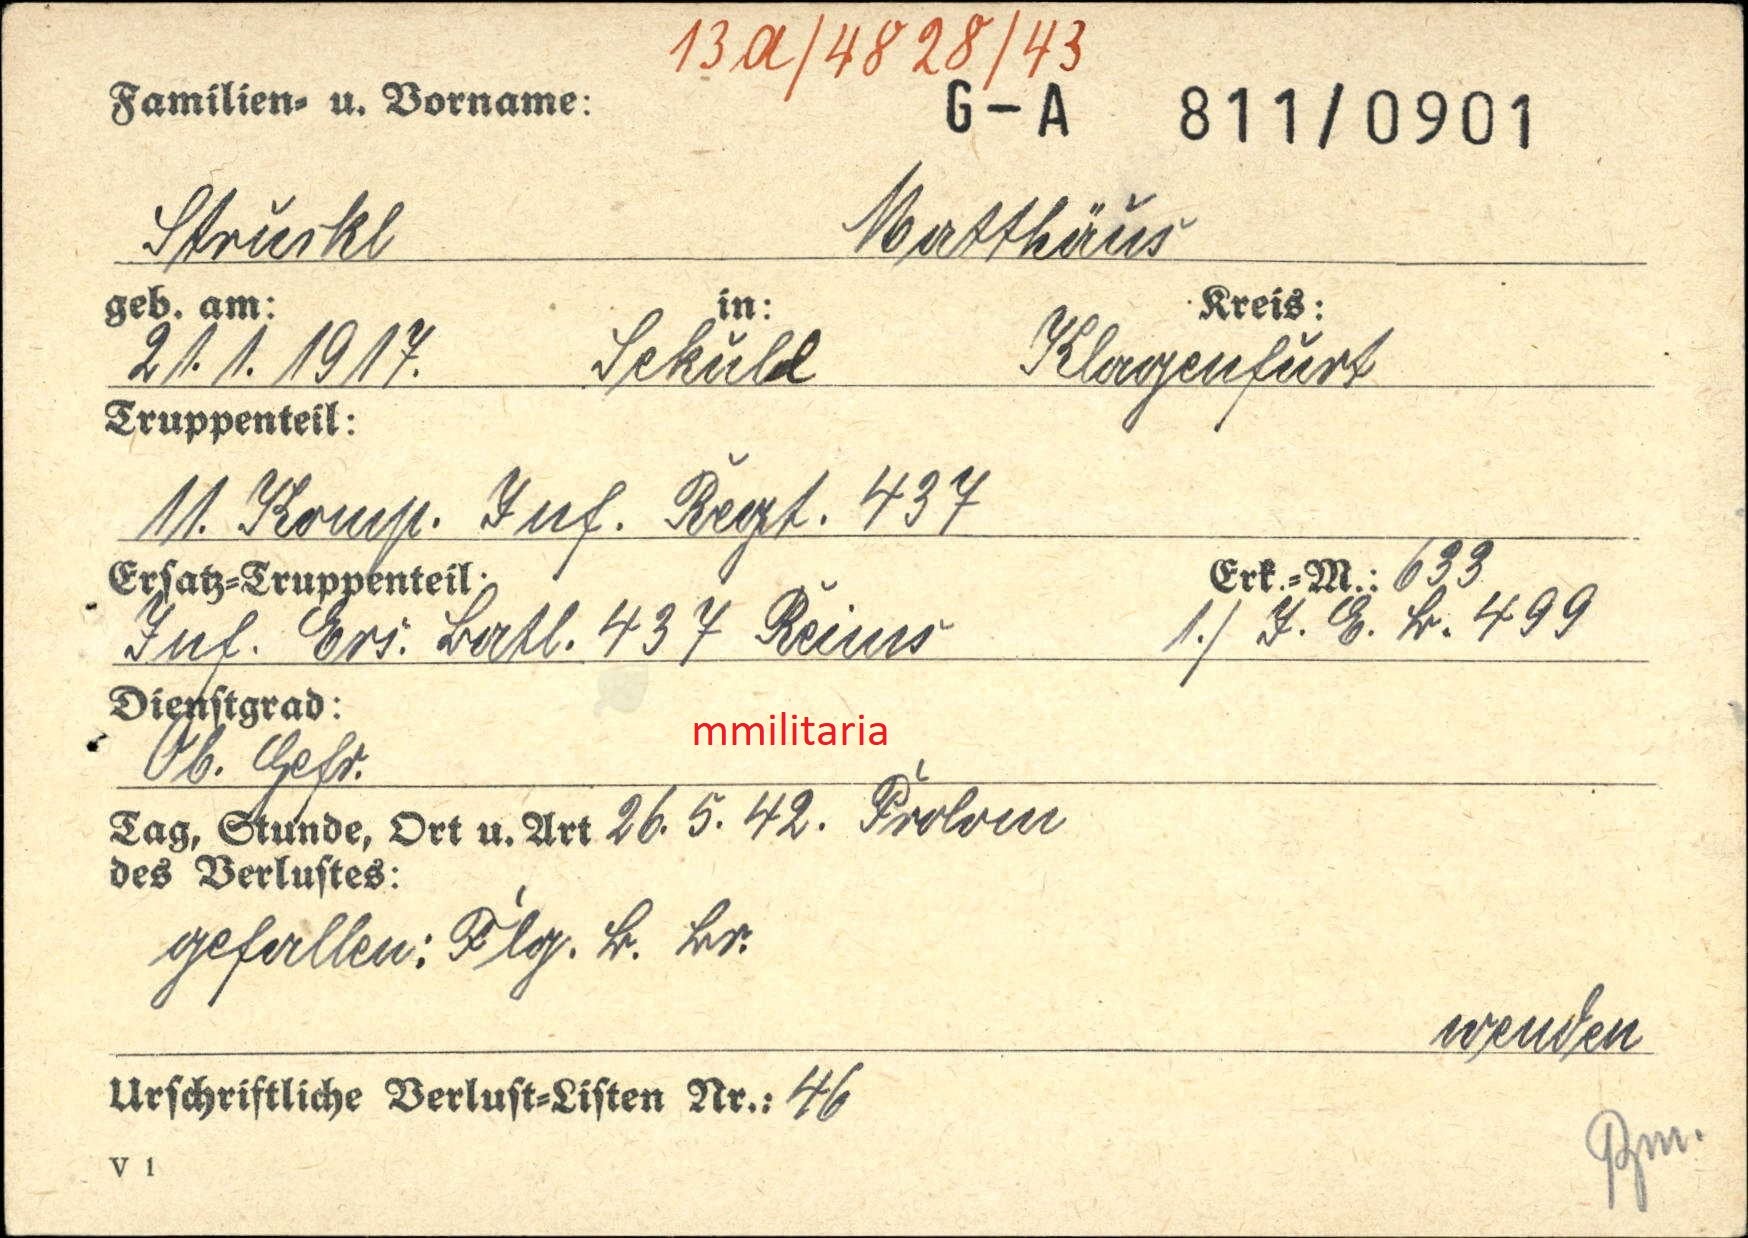 13a/4828/43
Familien- u. Vorname:
G-A 811/0901
Struckl Matthäus
geb. am: in: Kreis:
21.1.1917. Sekull Klagenfurt
Truppenteil:
11. Komp. Inf. Regt. 437
Ersatz-Truppenteil: Erk.-M.: 633
Inf. Ers. Batl. 437 Reims 1./ J. E. B. 499
Dienstgrad:
mmilitaria
Ob. Gefr.
Tag, Stunde, Ort u. Art 26.5.42. Prolom
des Verlustes:
gefallen: Flg. B. Br.
wenden
Urschriftliche Verlust-Listen Nr.: 46
V 1